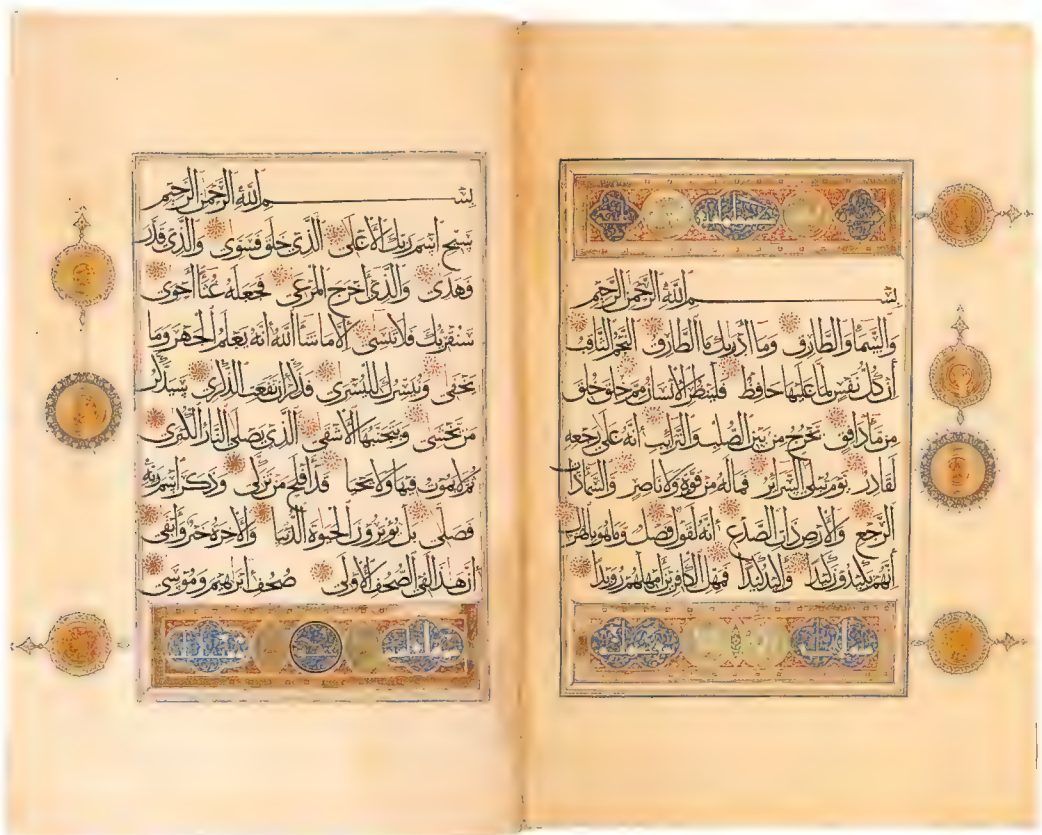 بسم الله الرحمن الرحيم
والسماء والطارق وما أدريك ما الطارق النجم الثاقب
إن كل نفس لما عليها حافظ فلينظر الإنسان مم خلق خلق
من ماء دافق يخرج من بين الصلب والترائب إنه على رجعه
لقادر يوم تبلى السرائر فما له من قوة ولا ناصر والسماء ذات
الرجع والأرض ذات الصدع إنه لقول فصل وما هو بالهزل
إنهم يكيدون كيدا وأكيد كيدا فمهل الكافرين أمهلهم رويدا
بسم الله الرحمن الرحيم
سبح اسم ربك الأعلى الذي خلق فسوى والذي قدر
فهدى والذي أخرج المرعى فجعله غثاء أحوى
سنقرئك فلا تنسى إلا ما شاء الله إنه يعلم الجهر وما
يخفى ونيسرك لليسرى فذكر إن نفعت الذكرى سيذكر
من يخشى ويتجنبها الأشقى الذي يصلى النار الكبرى
ثم لا يموت فيها ولا يحيى قد أفلح من تزكى وذكر اسم ربه
فصلى بل تؤثرون الحيوة الدنيا والآخرة خير وأبقى
إن هذا لفي الصحف الأولى صحف إبراهيم وموسى